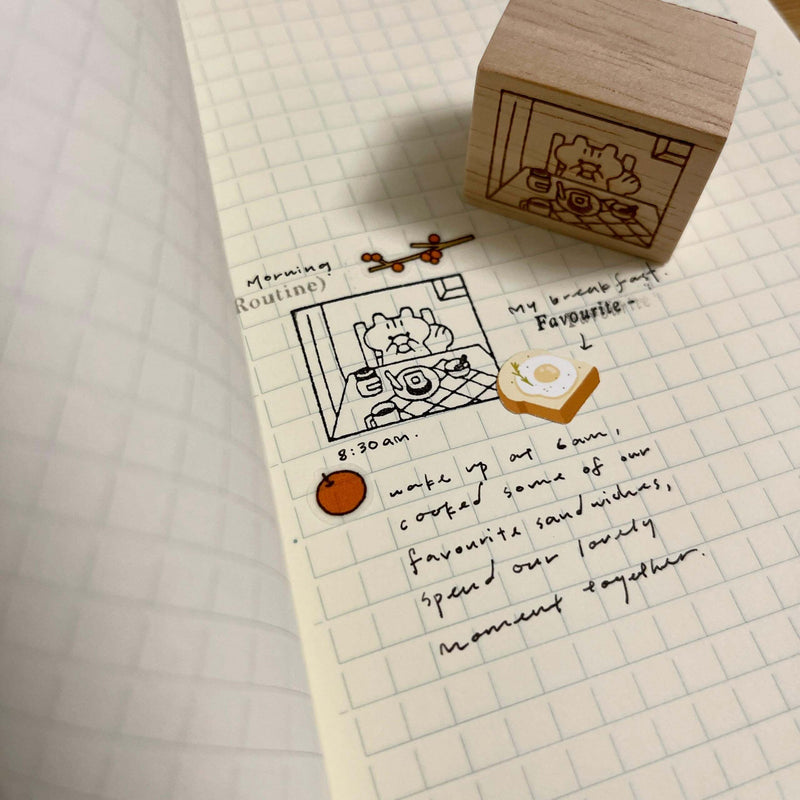 Morning
Routine)
My breakfast.
Favourite -
8:30 am.
wake up at 6am,
cooked some of our
favourite sandwiches,
spend our lovely
moment together.